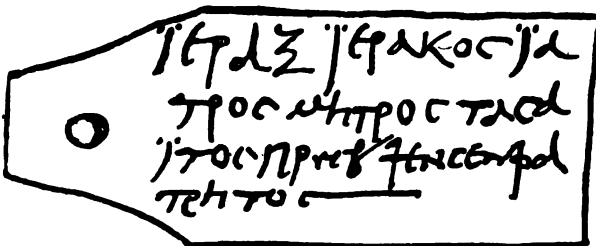 ϊεραξ ϊερακος ϊα
τρος μητρος τασα
ϊτος ψενσενφα
τρητος